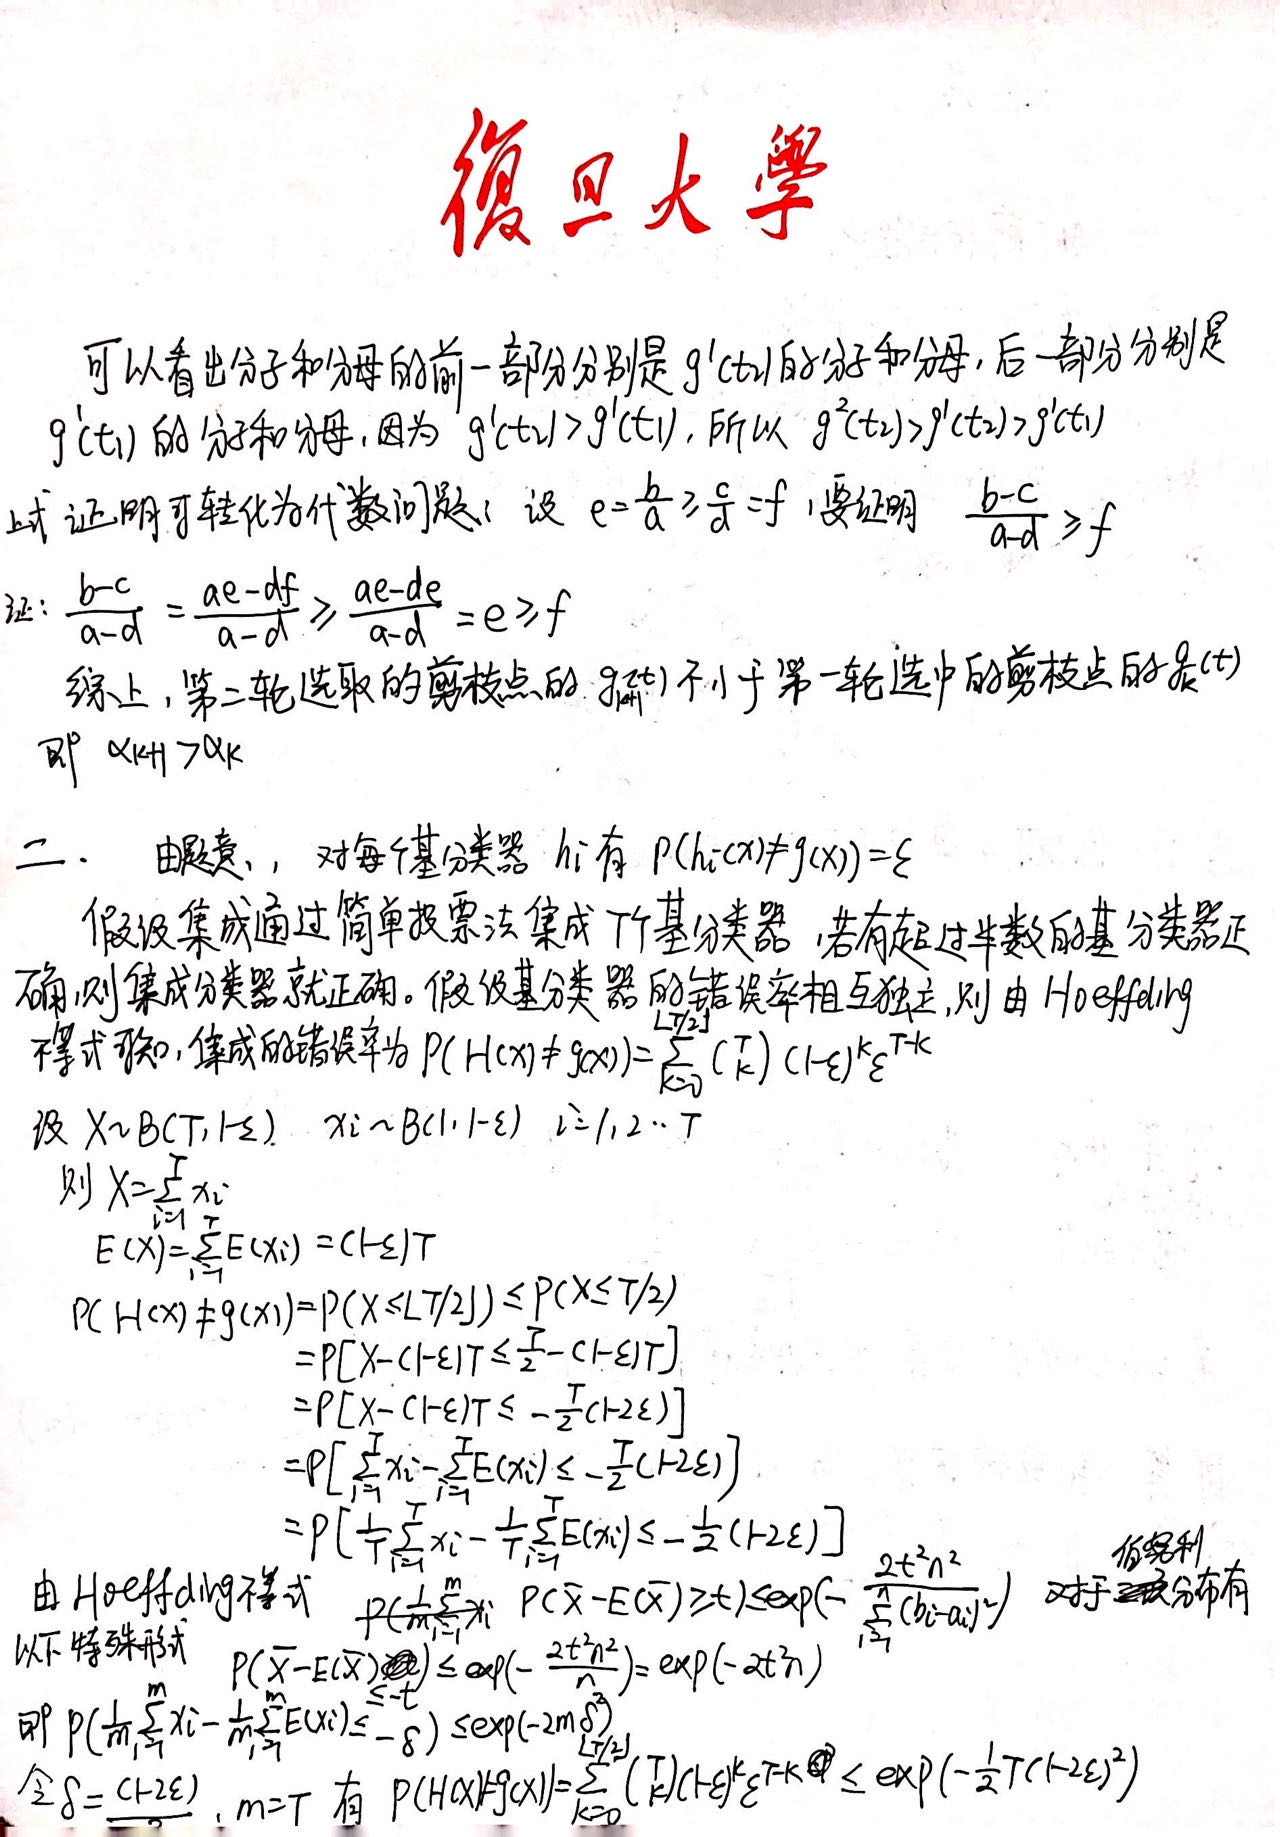 復旦大學
可以看出分子和分母的前一部分分别是 g'(t₂)的分子和分母,后一部分分别是
g'(t₁) 的分子和分母,因为 g'(t₂)>g'(t₁),所以 g²(t₂)>g'(t₂)>g'(t₁)
上式证明可转化为代数问题:设 e=b/a≥c/d=f,要证明 (b-c)/(a-d)≥f
证: (b-c)/(a-d) = (ae-df)/(a-d) ≥ (ae-de)/(a-d) = e≥f
综上,第二轮选取的剪枝点的 gₖ₊₁(t) 不小于第一轮选中的剪枝点的 gₖ(t)
即 αₖ₊₁>αₖ
二. 由题意,对每个基分类器 hi 有 P(hi(x)≠g(x))=ε
假设集成通过简单投票法集成 T个基分类器,若有超过半数的基分类器正
确,则集成分类器就正确。假设基分类器的错误率相互独立,则由 Hoeffding
不等式可知,集成的错误率为 P(H(x)≠g(x))=∑_{k=0}^{⌊T/2⌋} (T k) (1-ε)^k ε^{T-k}
设 X~B(T,1-ε) xi~B(1,1-ε) i=1,2..T
则 X=∑_{i=1}^{T} xi
E(X)=∑_{i=1}^{T}E(xi) =(1-ε)T
P(H(x)≠g(x))=P(X≤⌊T/2⌋)≤P(X≤T/2)
=P[X-(1-ε)T≤T/2-(1-ε)T]
=P[X-(1-ε)T≤ -T/2(1-2ε)]
=P[∑_{i=1}^{T}xi-∑_{i=1}^{T}E(xi)≤-T/2(1-2ε)]
=P[1/T∑_{i=1}^{T}xi-1/T∑_{i=1}^{T}E(xi)≤-1/2(1-2ε)]
由 Hoeffding不等式 P(X̄-E(X̄)≥t)≤exp(-2t²n²/∑_{i=1}^{n}(bi-ai)²) 对于伯努利分布有
以下特殊形式 P(X̄-E(X̄)≤-t)≤exp(-2t²n²/n)=exp(-2t²n)
即 P(1/m∑_{i=1}^{m}xi-1/m∑_{i=1}^{m}E(xi)≤-δ)≤exp(-2mδ²)
令δ=(1-2ε)/2,m=T 有 P(H(x)≠g(x))=∑_{k=0}^{⌊T/2⌋}(T k)(1-ε)^k ε^{T-k} ≤ exp(-1/2T(1-2ε)²)